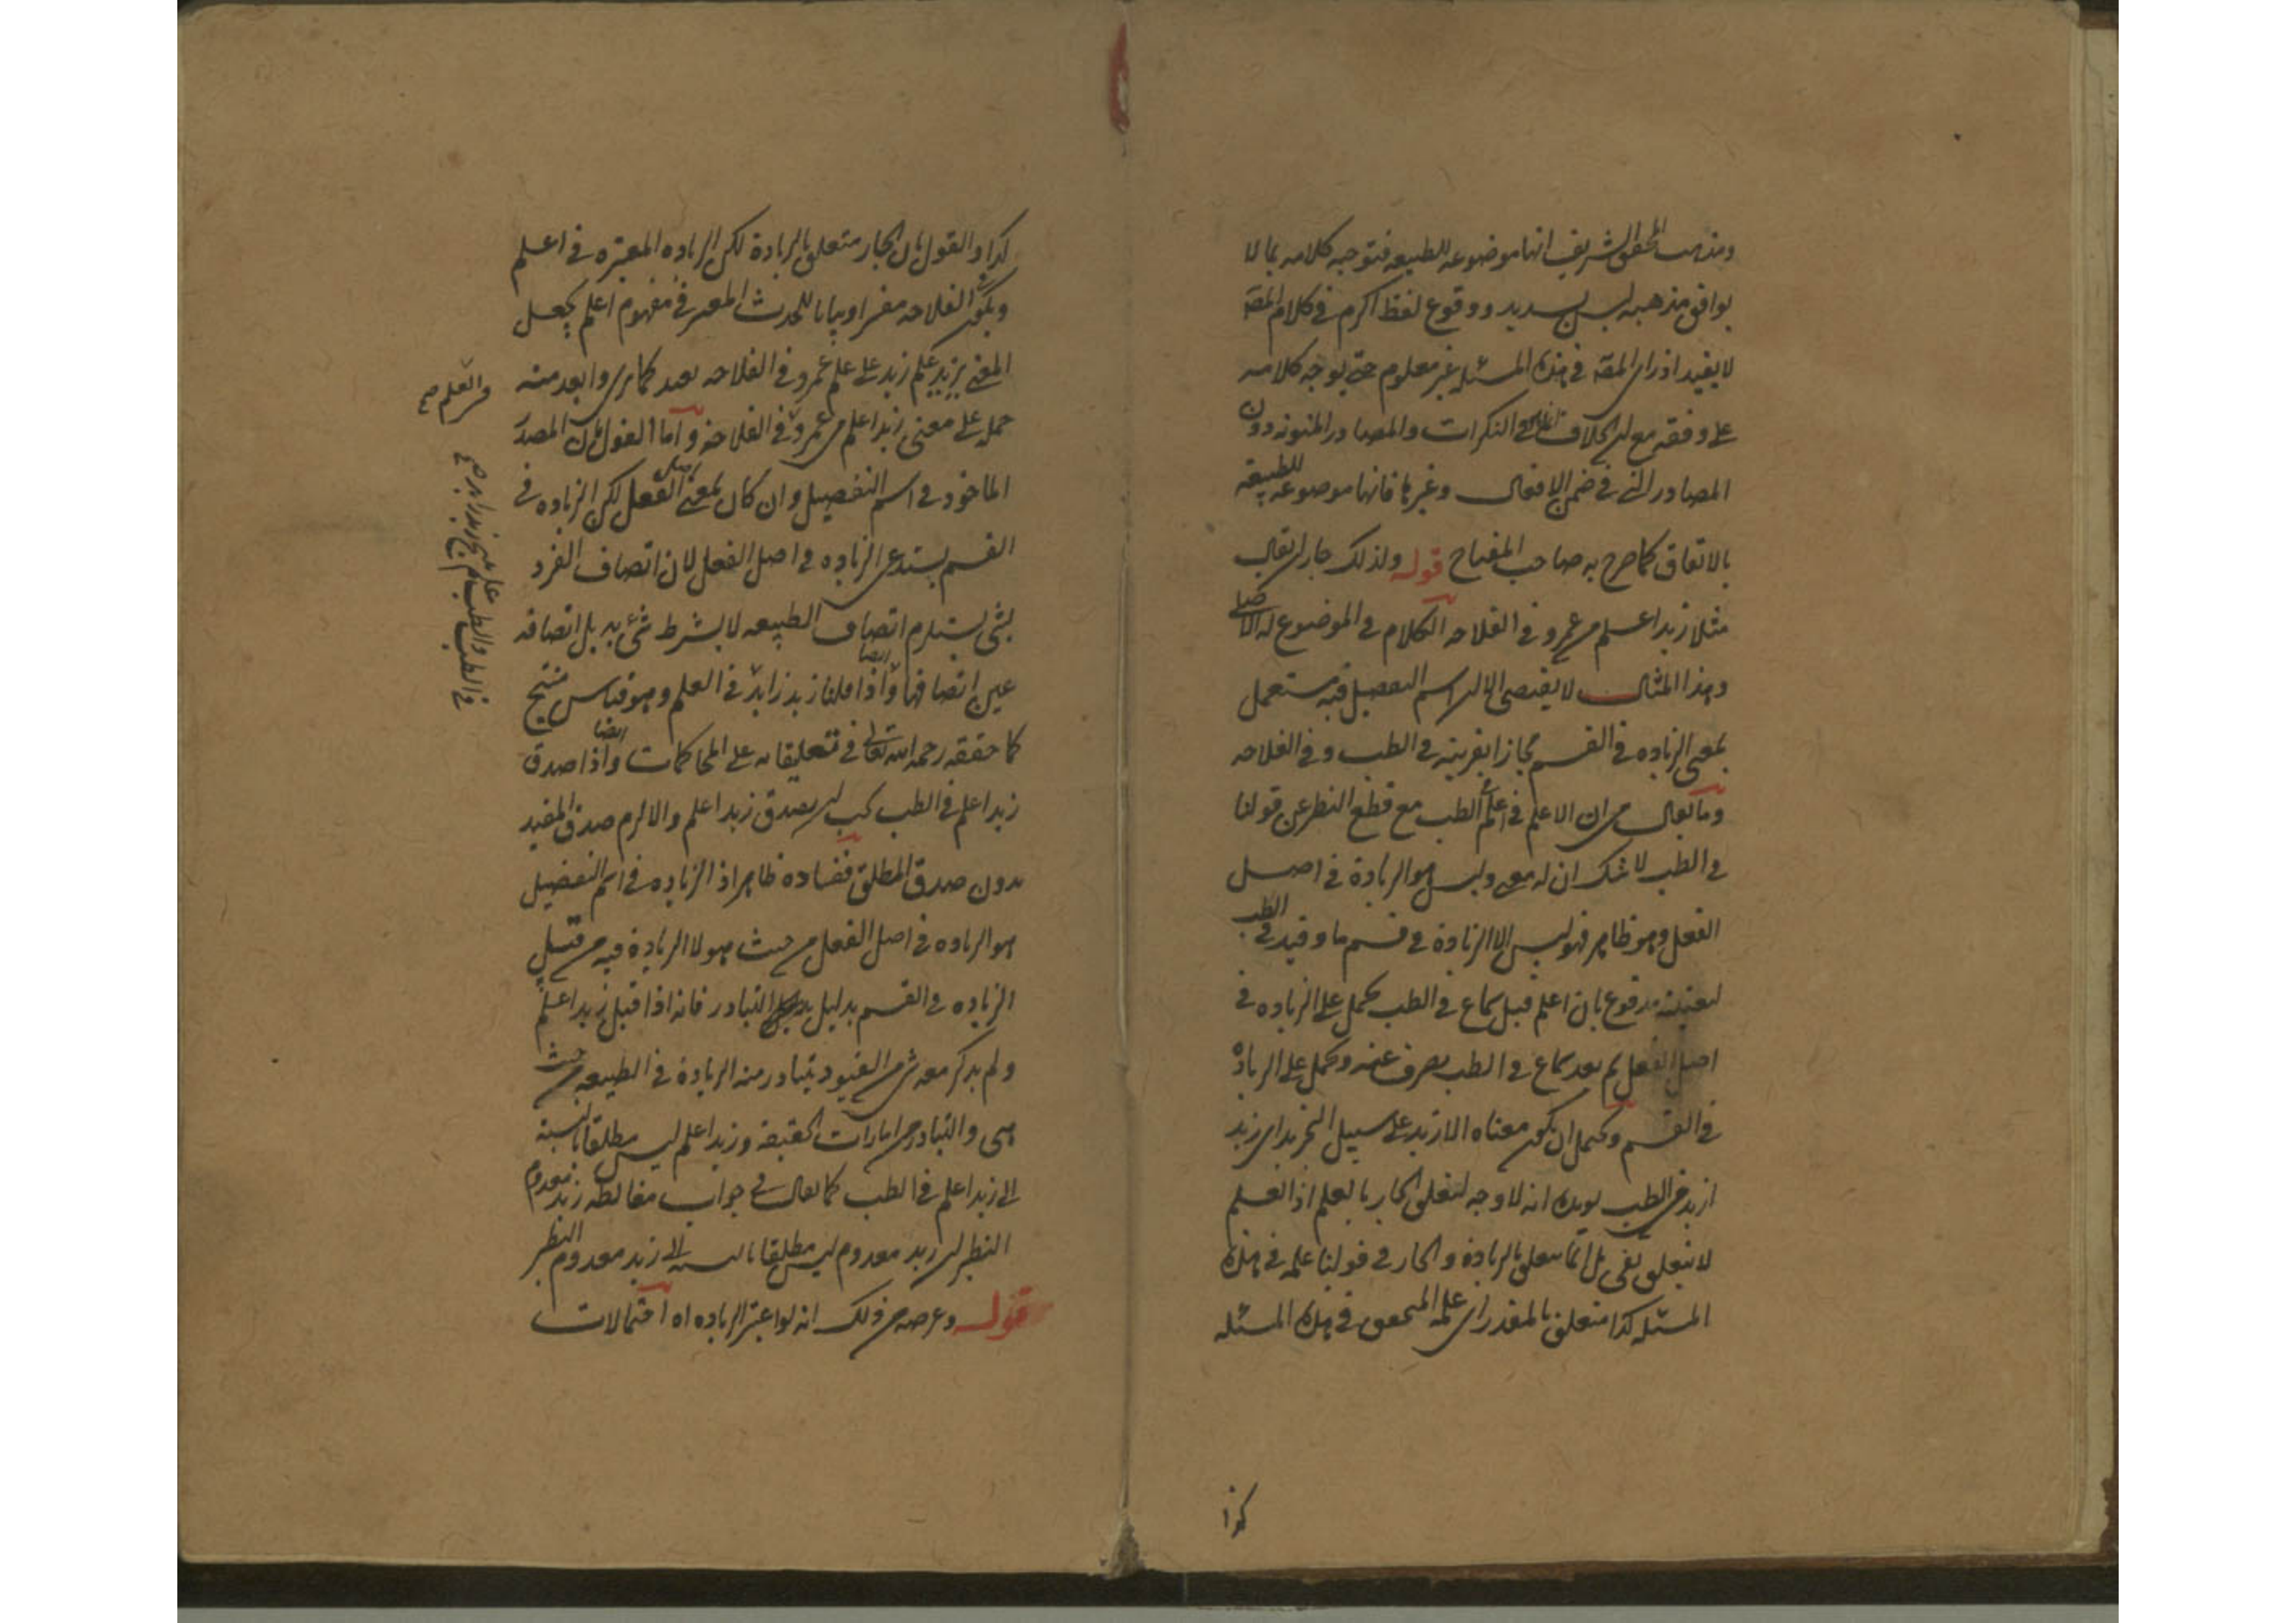 ومذهب المحقق الشريف انها موضوعه للطبيعه فتوجيه كلامه بما لا
يوافق مذهبه ليس بسديد ووقوع لفظ اكرم في كلام المصة
لا يفيد اذ راى المصة في هذه المسئله غير معلوم حتى يوجه كلامه
على وفقه مع ان الخلاف انما في النكرات والمصادر المنونه دون
المصادر التي في ضمن الافعال وغيرها فانها موضوعه للطبيعة
بالاتفاق كما صرح به صاحب المفتاح قوله ولذلك جاز ان يقال
مثلا زيد اعلم من عمرو في الفلاحه الكلام في الموضوع له الاصلي
وهذا المثال لا يقتضي الا ان اسم التفضيل فيه مستعمل
بمعنى الزياده في القسم مجازا بقرينه في الطب وفي الفلاحه
وما يقال من ان الاعلم في اعلم في الطب مع قطع النظر عن قولنا
في الطب لا شك ان له معنى وليس هو الزيادة في اصل
الفعل وهو ظاهر فهو ليس الا الزيادة في قسم ما وقيد في الطب
لتعيينه مدفوع بان اعلم قبل سماع في الطب يحمل على الزياده في
اصل الفعل ثم بعد سماع في الطب يصرف عنه ويحمل على الزيادة
في القسم ويحتمل ان يكون معناه الازيد على سبيل التجريد اى زيد
ازيد في الطب يويده انه لا وجه لتعلق الجار بالعلم اذ العلم
لا يتعلق بفي بل انما يتعلق بالزيادة والجار في قولنا علمه في هذه
المسئله كذا متعلق بالمقدر اى علمه المتحقق في هذه المسئله
كذا
كذا والقول بان الجار متعلق بالزيادة لكن الزياده المعتبره في اعلم
ويكون الفلاحه مفسرا وبيانا للحدث المعتبر في مفهوم اعلم يجعل
المعنى يزيد علم زيد على علم عمرو في الفلاحه بعيد كما ترى وابعد منه
حمله على معنى زيد اعلم من عمرو في الفلاحة واما القول بان المصدر
الماخوذ في اسم التفضيل وان كان بمعنى اصل الفعل لكن الزياده في
القسم يستدعى الزياده في اصل الفعل لان اتصاف الفرد
بشئ يستلزم اتصاف الطبيعه لا بشرط شئ به بل اتصافه
عين اتصافها وايضا اذا قلنا زيد زايد في العلم وهو قياس منتج
كما حققه رحمه الله تعالى في تعليقاته على المحاكمات وايضا اذا صدق
زيد اعلم في الطب يجب ان يصدق زيد اعلم والا لزم صدق المقيد
بدون صدق المطلق ففساده ظاهر اذ الزياده في اسم التفضيل
هو الزياده في اصل الفعل من حيث هو لا الزيادة فيه من قبيل
الزياده في القسم بدليل التبادر فانه اذا قيل زيد اعلم
ولم يذكر معه شئ من القيود يتبادر منه الزيادة في الطبيعه من حيث
هى والتبادر من امارات الحقيقة وزيد اعلم ليس مطلقا بالنسبة
الى زيد اعلم في الطب كما يقال في جواب مغالطه زيد معدوم
النظر ان زيد معدوم ليس مطلقا بالنسبه الى زيد معدوم النظر
قوله وغرضه من ذلك انه لو اعتبر الزياده اه احتمالات
والعلم صح
في الطب والطب علم ينتج زيد زايد صح